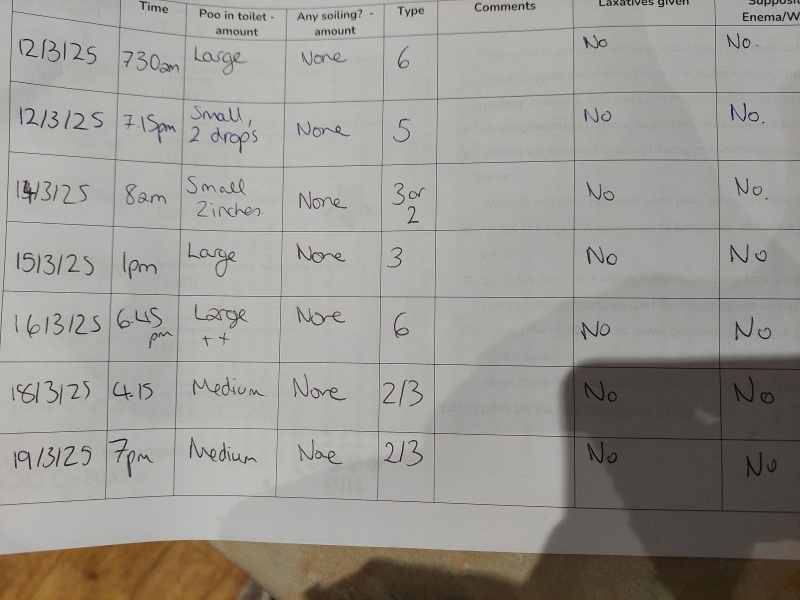 Time Poo in toilet - Any soiling? - Type Comments Laxatives given
amount amount Enema/W
12/3/25 730am Large None 6 No No.
12/3/25 7.15pm Small, None 5 No No.
2 drops
14/3/25 8am Small None 3 or No No.
2inches. 2
15/3/25 1pm Large None 3 No No
16/3/25 6.45 Large None 6 No No
pm ++
18/3/25 4.15 Medium None 2/3 No No
19/3/25 7pm Medium Noe 2/3 No No